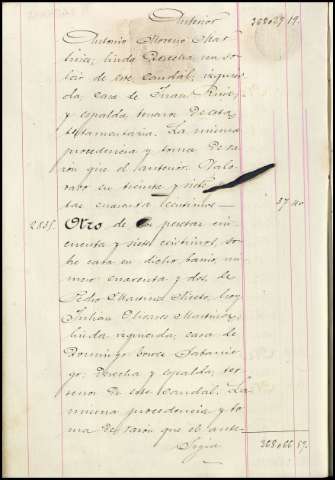 Anterior 368029 19.
Antonio Moreno Mar-
tinez; linda derecha un so-
lar de este caudal; izquier-
da, casa de Juana Ruiz,
y espalda terreno de esta
testamentaria. La misma
procedencia y toma de ra-
zón que el anterior. Valo-
rado en treinta y siete
tas cuarenta centimos— 37 40
2.835. Otro de pesetas cin-
cuenta y siete centimos, so-
bre casa en dicho barrio, nú-
mero cuarenta y dos, de
Pedro Martinez Nieto, hoy
Julian Olivares Martinez;
linda izquierda, casa de
Domingo
go; derecha y espalda, te-
rrenos de este caudal. La
misma procedencia y to-
ma de razón que el ante-
Sigue 368066 59.